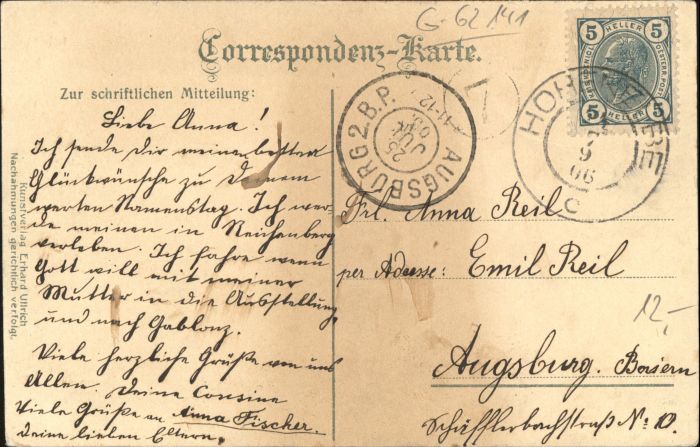 G-62 141
Correspondenz-Karte.
Zur schriftlichen Mitteilung:
Liebe Anna!
Ich sende dir meinen besten
Glückwünsche zu Deinem
werten Namenstag. Ich wer-
de meinen in Reichenberg
verleben. Ich fahre wenn
Gott will mit meiner
Mutter in die Ausstellung
und nach Gablonz.
Viele herzliche Grüße von uns
Allen. Deine Cousine
Viele Grüße an Anna Fischer.
deine lieben Eltern.
Kunstverlag Erhard Ullrich
Nachahmungen gerichtlich verfolgt.
AUGSBURG 2.B.P.
25
JUL
11-12
5 HELLER 5
5 HELLER 5
HOHEN
ELBE
9
06
C
Frl. Anna Reil
per Adresse: Emil Reil
12,-
Augsburg. Baiern
Schäfflerbachstraß No: 10.